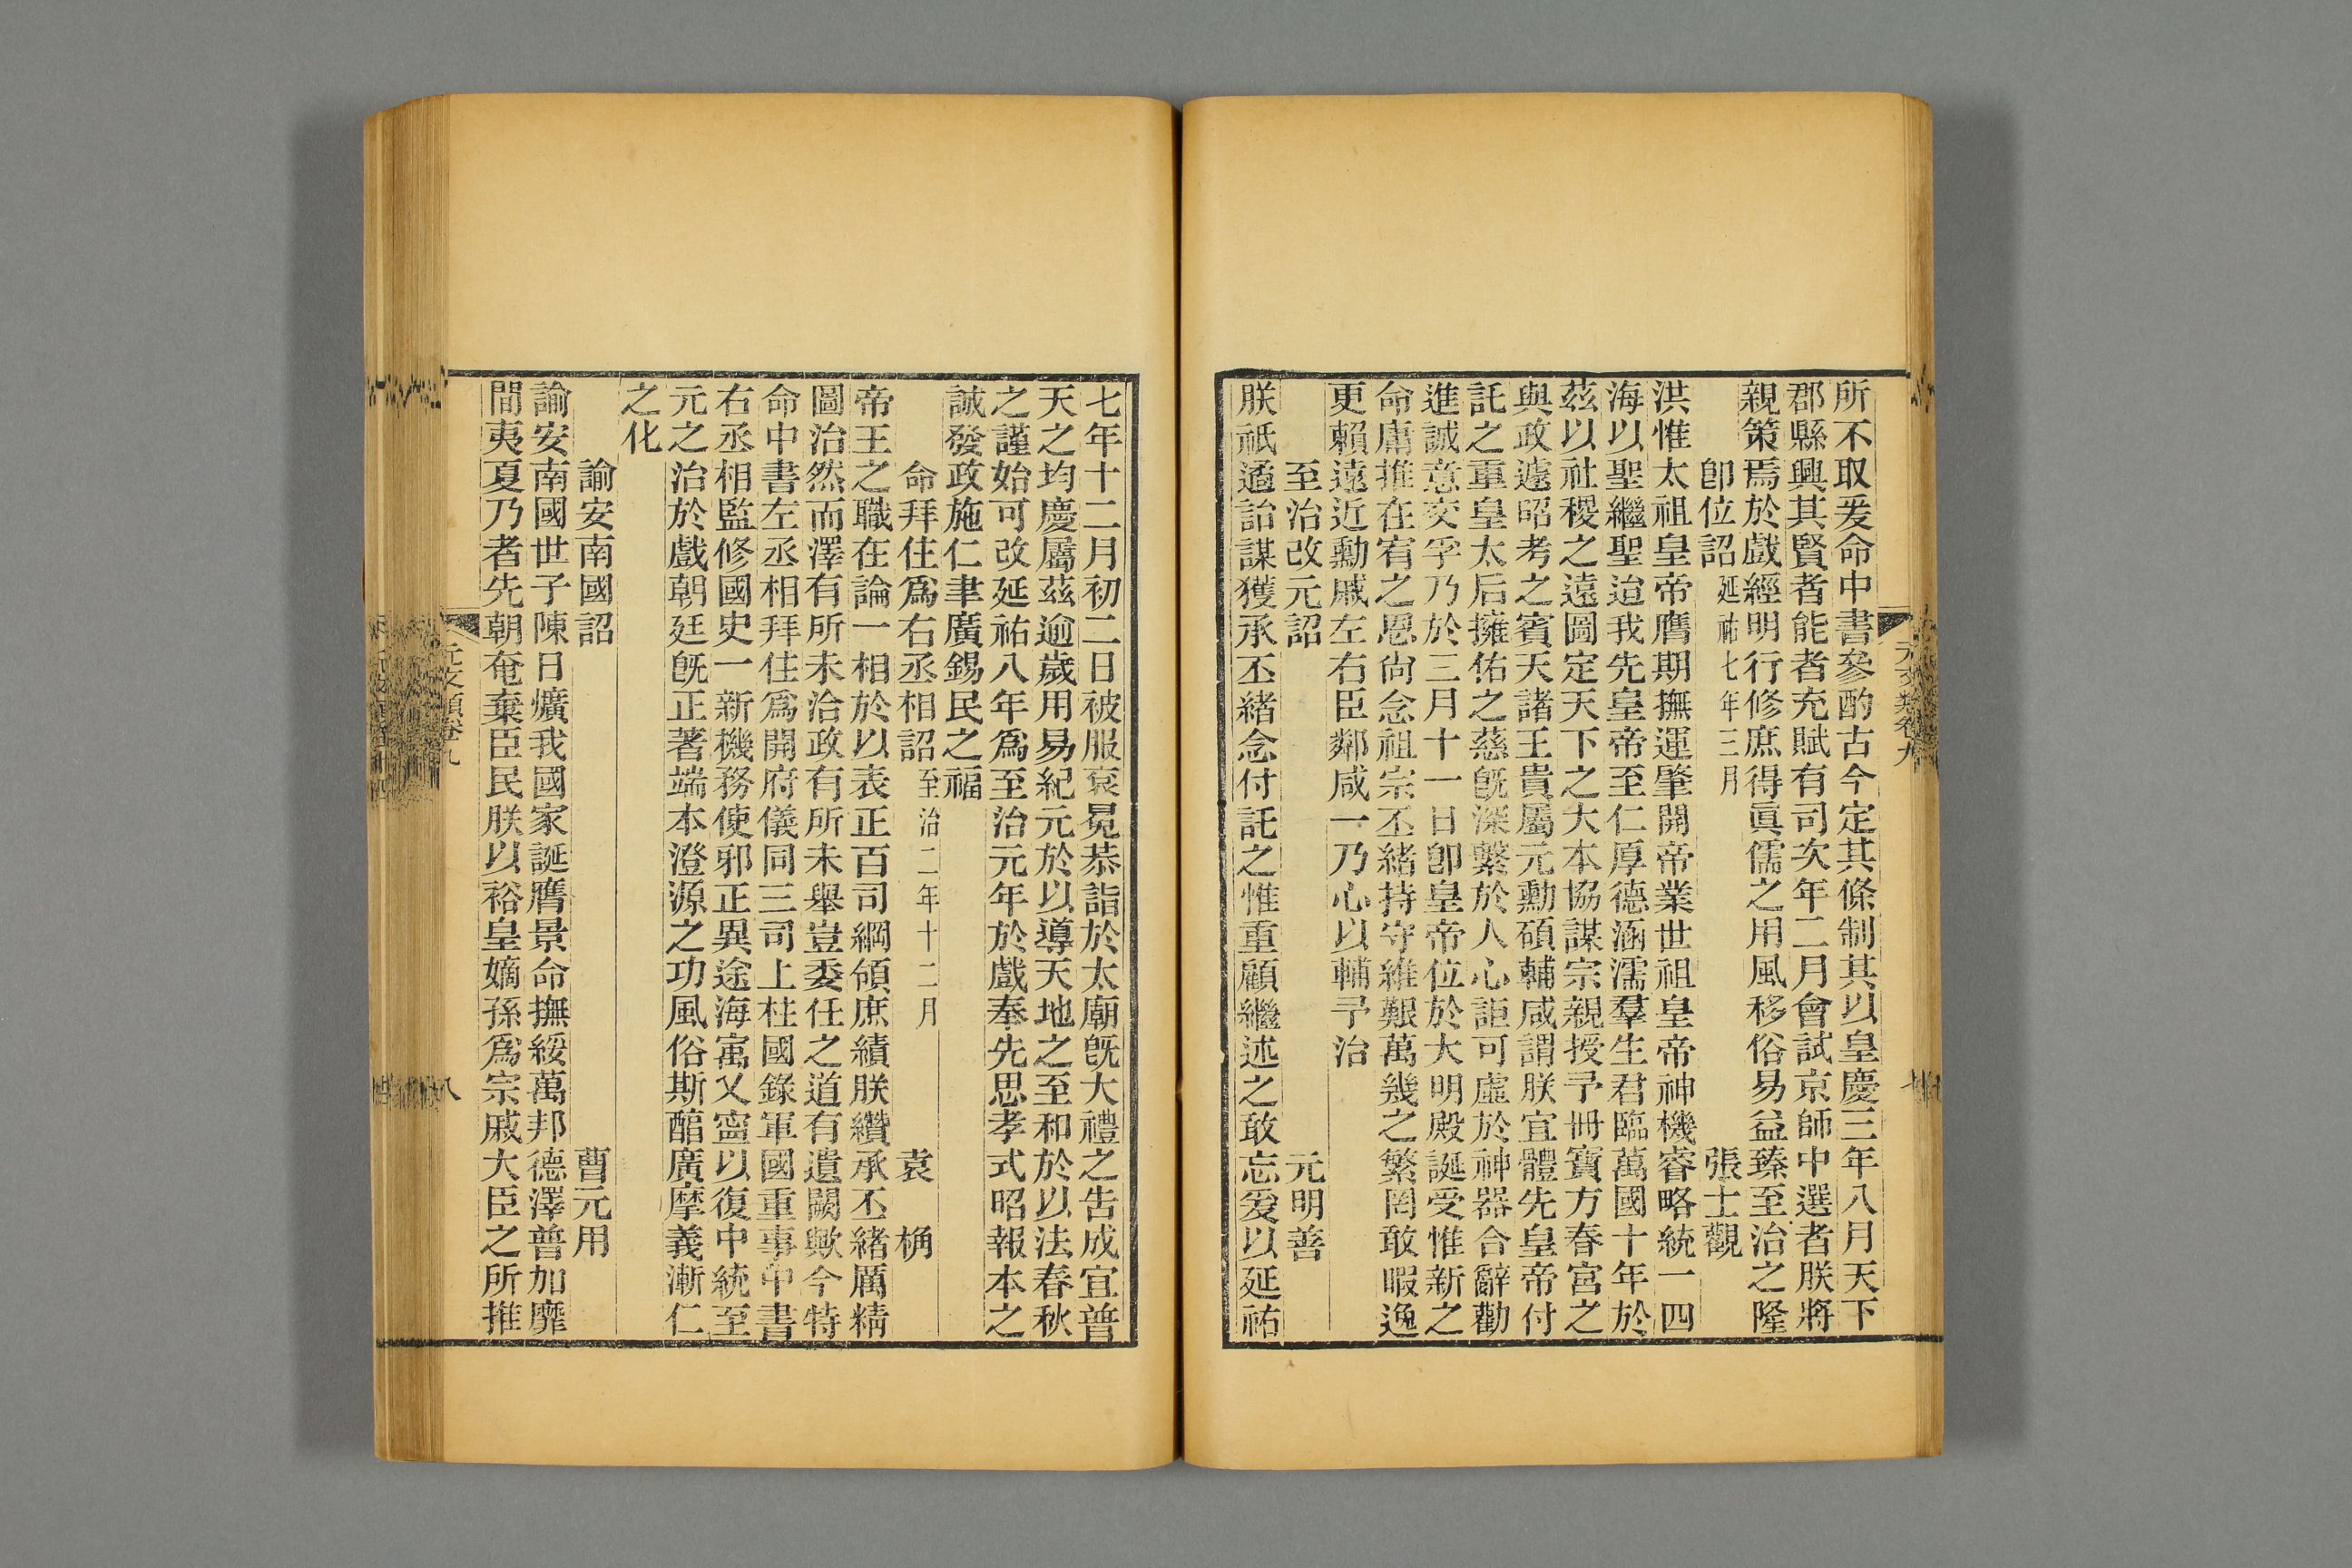 所不取爰命中書參酌古今定其條制其以皇慶三年八月天下
郡縣興其賢者能者充賦有司次年二月會試京師中選者朕將
親策焉於戲經明行修庶得眞儒之用風移俗易益臻至治之隆
卽位詔 延祐七年三月 張士觀
洪惟太祖皇帝膺期撫運肇開帝業世祖皇帝神機睿略統一四
海以聖繼聖迨我先皇帝至仁厚德涵濡羣生君臨萬國十年於
茲以社稷之遠圖定天下之大本協謀宗親授予冊寶方春宮之
與政遽昭考之賓天諸王貴屬元勳碩輔咸謂朕宜體先皇帝付
託之重皇太后擁佑之慈旣深繫於人心詎可虛於神器合辭勸
進誠意交孚乃於三月十一日卽皇帝位於大明殿誕受惟新之
命庸推在宥之恩尙念祖宗丕緒持守維艱萬幾之繁罔敢暇逸
更賴遠近勳戚左右臣鄰咸一乃心以輔予治
至治改元詔 元明善
朕祇遹詒謀獲承丕緒念付託之惟重顧繼述之敢忘爰以延祐
七年十二月初二日被服袞冕恭詣於太廟旣大禮之告成宜普
天之均慶屬茲逾歲用易紀元於以導天地之至和於以法春秋
之謹始可改延祐八年爲至治元年於戲奉先思孝式昭報本之
誠發政施仁聿廣錫民之福
命拜住爲右丞相詔 至治二年十二月 袁桷
帝王之職在論一相於以表正百司綱領庶績朕纘承丕緒厲精
圖治然而澤有所未洽政有所未舉豈委任之道有遺闕歟今特
命中書左丞相拜住爲開府儀同三司上柱國錄軍國重事中書
右丞相監修國史一新機務使邪正異途海寓乂寧以復中統至
元之治於戲朝廷旣正著端本澄源之功風俗斯醇廣摩義漸仁
之化
諭安南國詔 曹元用
諭安南國世子陳日爌我國家誕膺景命撫綏萬邦德澤普加靡
間夷夏乃者先朝奄棄臣民朕以裕皇嫡孫爲宗戚大臣之所推
元文類卷九
八